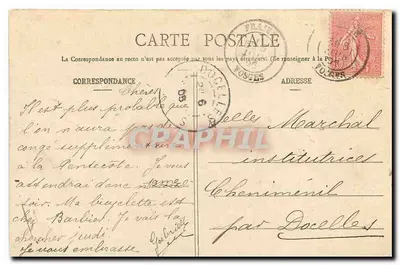 CARTE POSTALE
La Correspondance au recto n'est pas acceptée par tous les pays étrangers (Se renseigner à la Poste)
CORRESPONDANCE
ADRESSE
FRAI
VOSGES
VOSGES
DOCELLES
6
05
Chères
Il est plus probable que
l'on n'aura pas de
congé supplémen
à la Pentecôte. Je vous
attendrai donc
soir. Ma bicyclette est
chez Barbier. Je vais la
chercher jeudi.
Je vous embrasse
Gabrielle
elles Marchal
institutrices
Cheniménil
par Docelles
PRIVATE COLLECTION